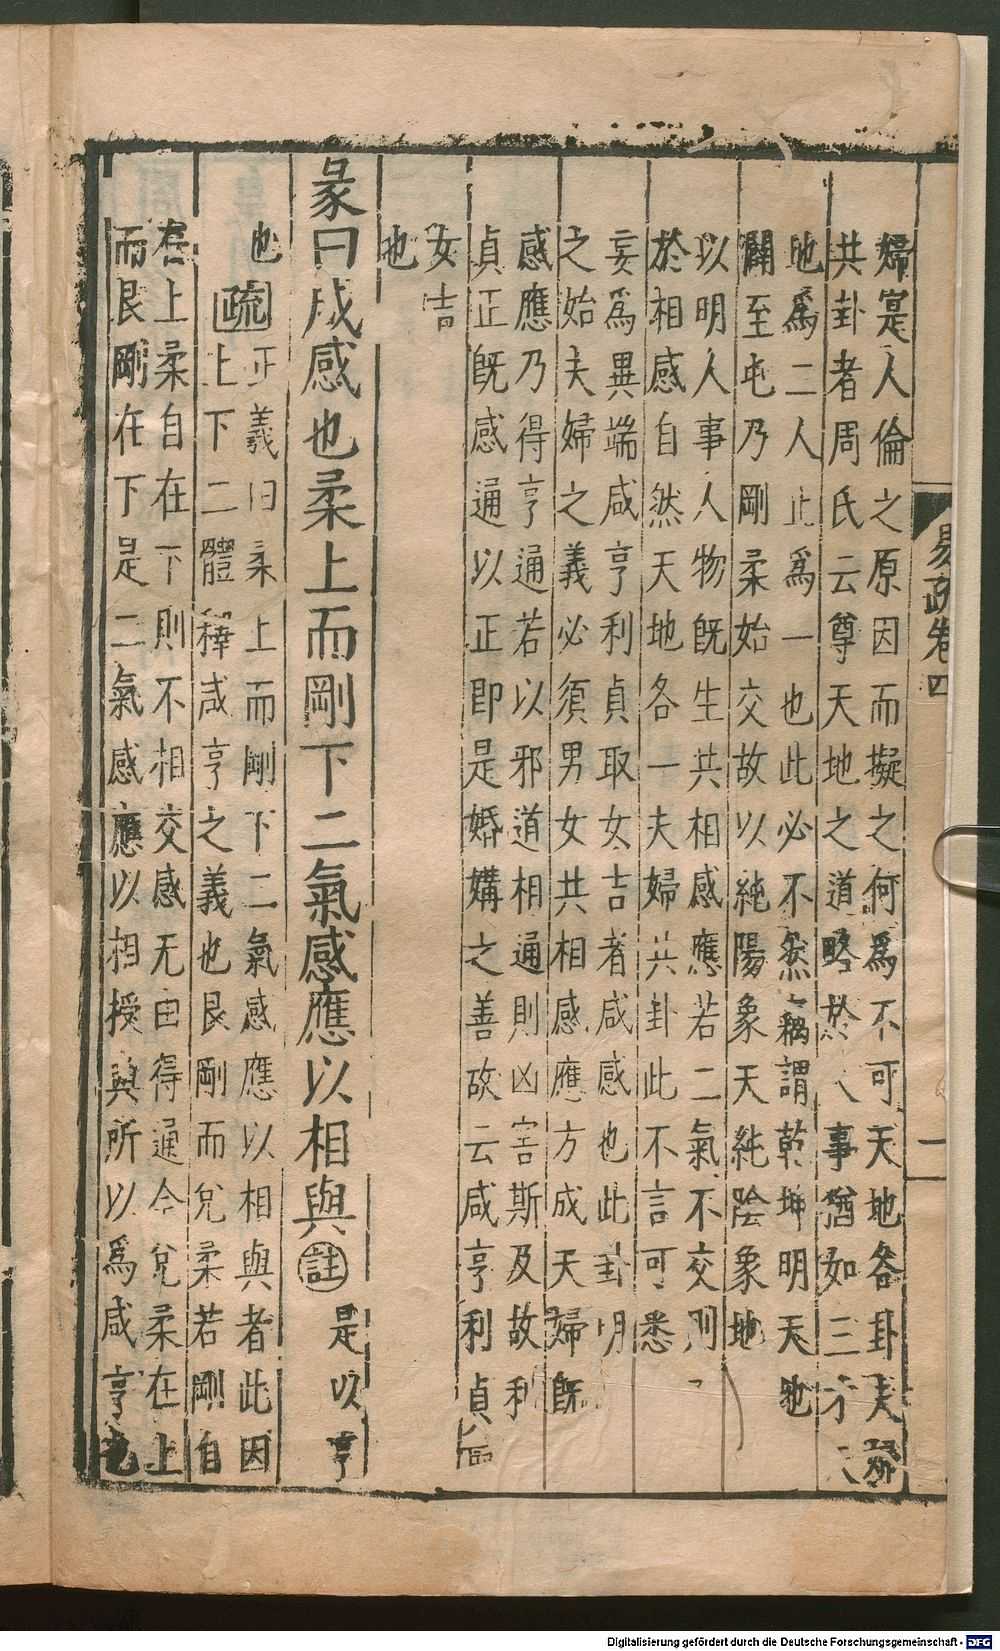 婦寔人倫之原因而擬之何為不可天地各卦夫婦
共卦者周氏云尊天地之道略於人事猶如三才天
地為二人止為一也此必不然竊謂乾坤明天地
闢至屯乃剛柔始交故以純陽象天純陰象地
以明人事人物旣生共相感應若二氣不交則
於相感自然天地各一夫婦共卦此不言可悉
妄為異端咸亨利貞取女吉者咸感也此卦明
之始夫婦之義必須男女共相感應方成夫婦旣
感應乃得亨通若以邪道相通則凶害斯及故利
貞正旣感通以正即是婚媾之善故云咸亨利貞取
女吉
也
彖曰咸感也柔上而剛下二氣感應以相與 註 是以亨
也 疏 正義曰柔上而剛下二氣感應以相與者此因
上下二體釋咸亨之義也艮剛而兌柔若剛自
在上柔自在下則不相交感无由得通今兌柔在上
而艮剛在下是二氣感應以相授與所以為咸亨也
易疏卷四
一
Digitalisierung gefördert durch die Deutsche Forschungsgemeinschaft - DFG